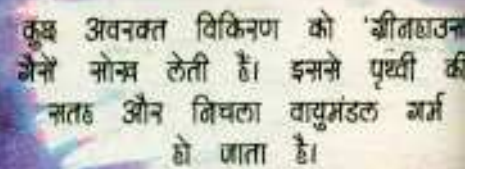 कुछ अवरक्त विकिरण को 'ग्रीनहाउस
गैसें सोख लेती हैं। इससे पृथ्वी की
सतह और निचला वायुमंडल गर्म
हो जाता है।